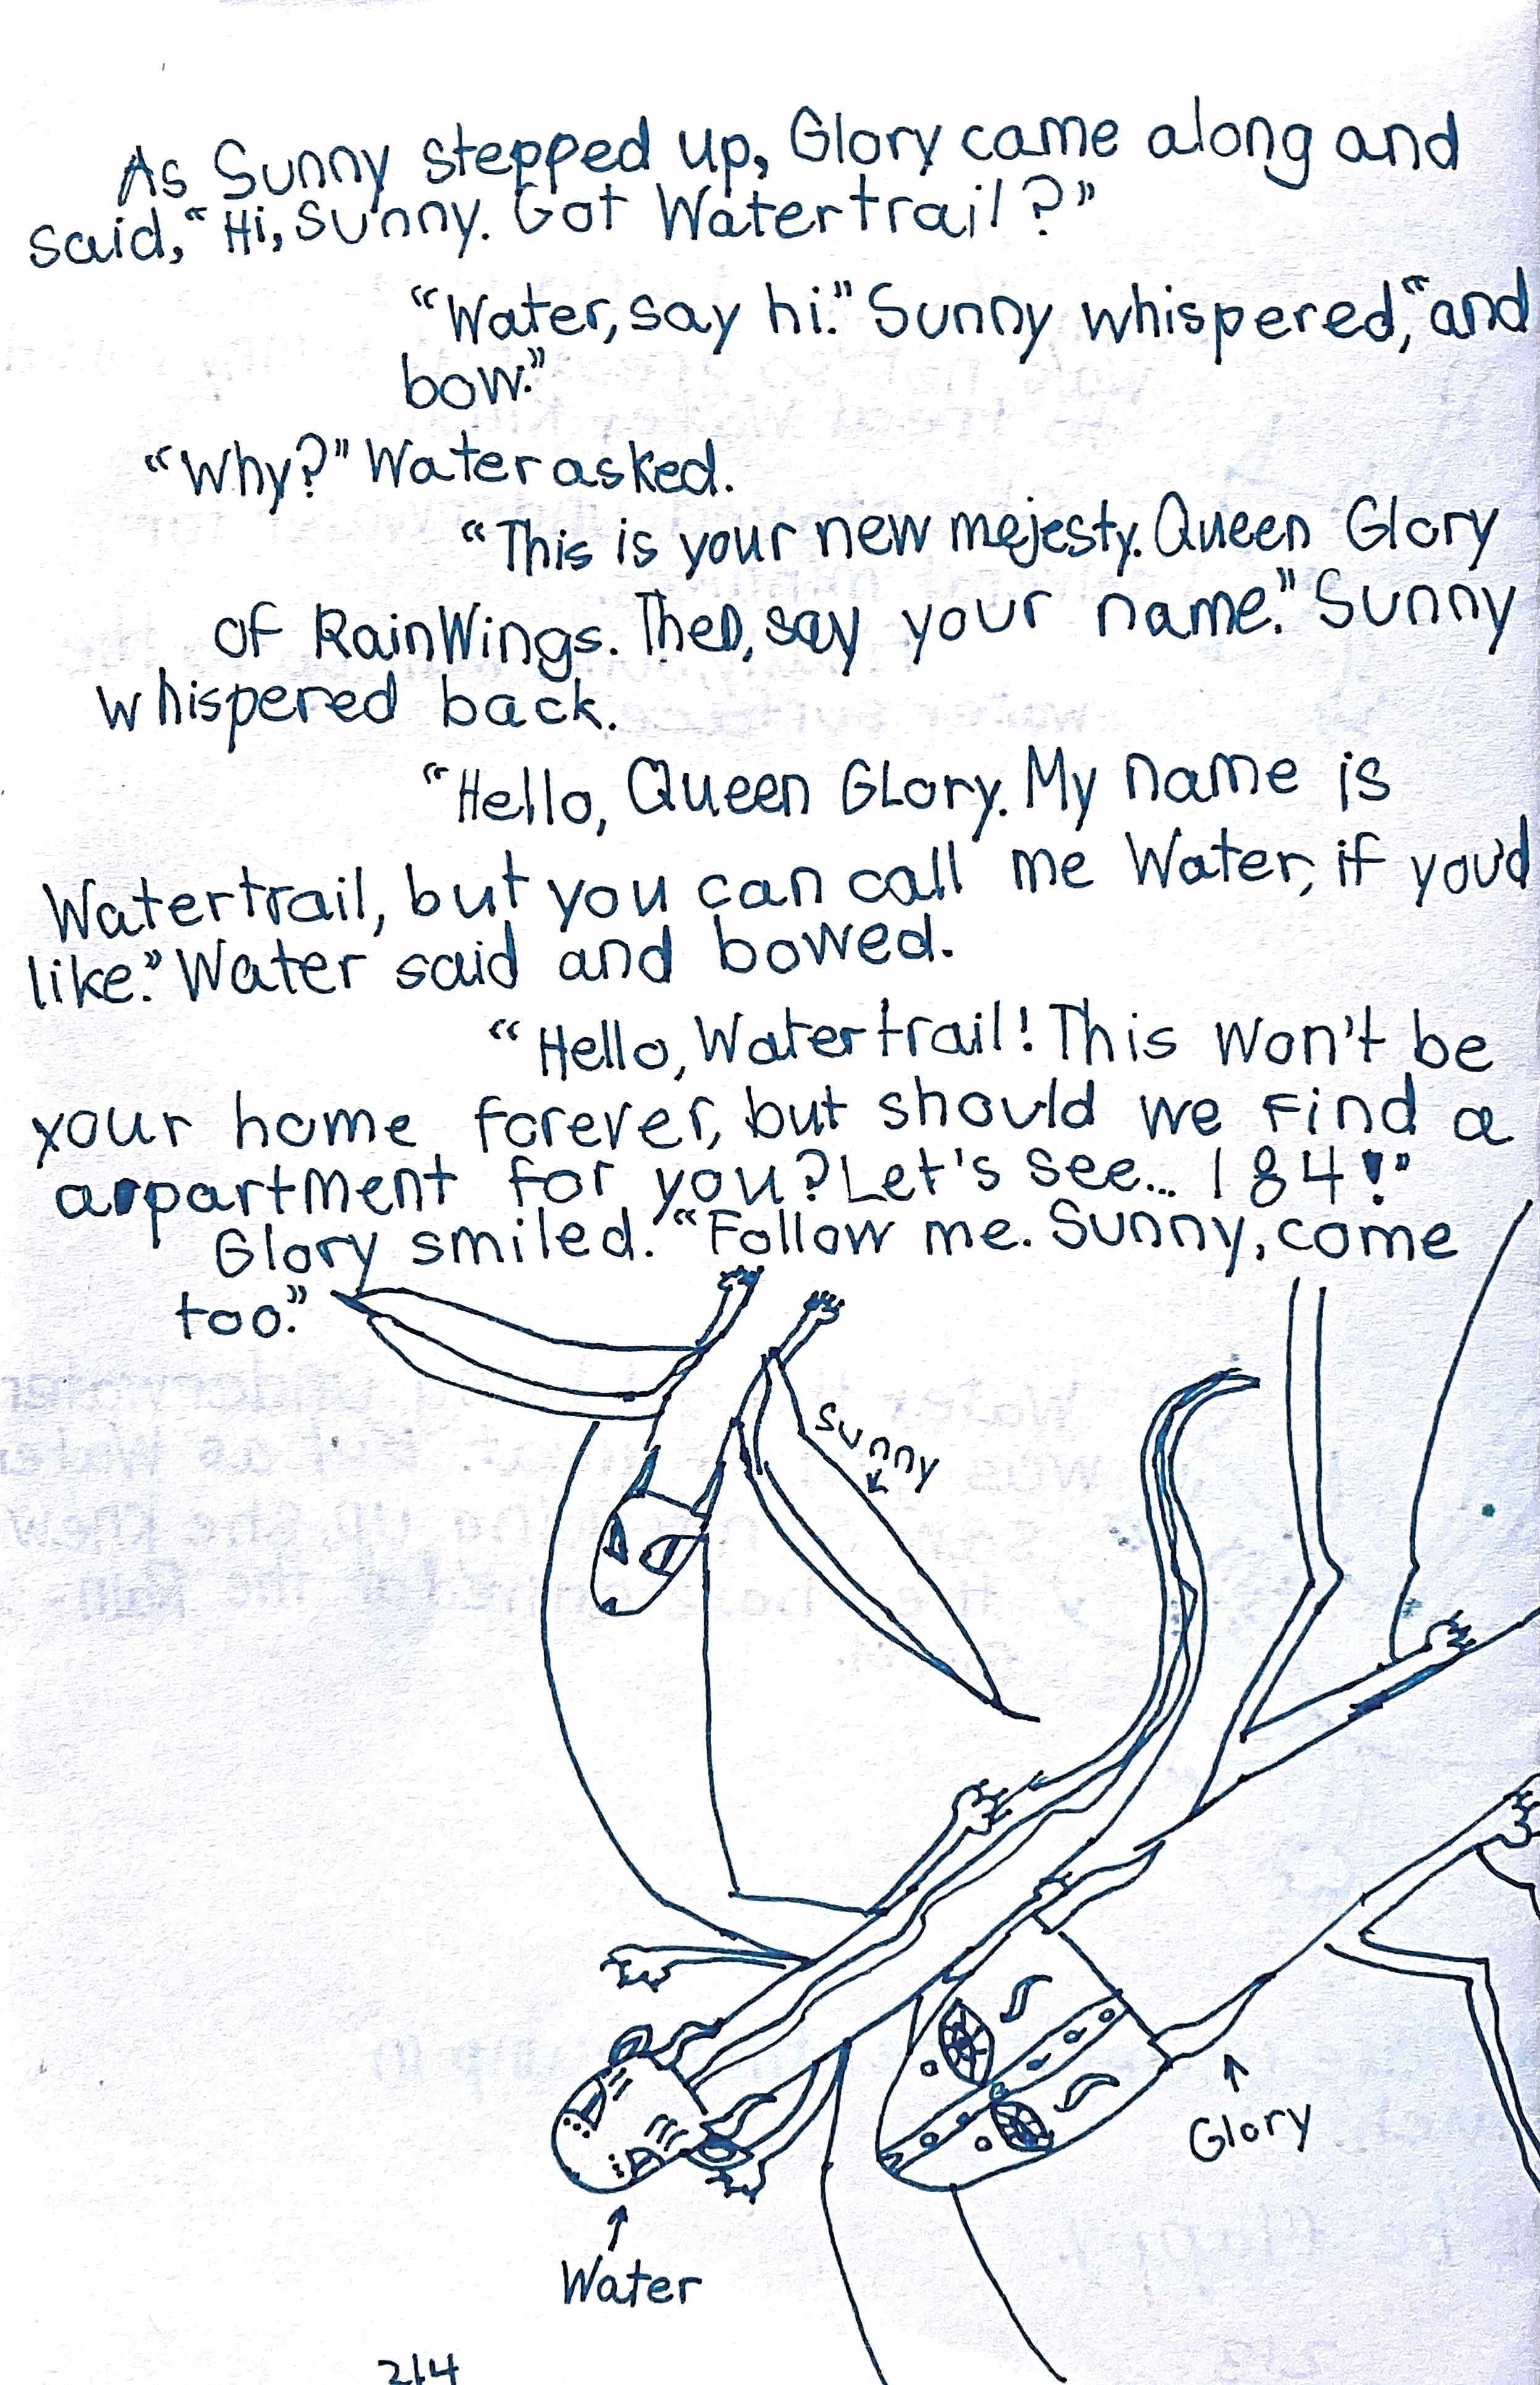 As Sunny stepped up, Glory came along and
said, "Hi, Sunny. Got Watertrail?"
"Water, say hi." Sunny whispered, "and
bow."
"Why?" Water asked.
"This is your new mejesty. Queen Glory
of RainWings. Then, say your name." Sunny
whispered back.
"Hello, Queen Glory. My name is
Watertrail, but you can call me Water, if you'd
like." Water said and bowed.
"Hello, Watertrail! This won't be
your home forever, but should we find a
appartment for you? Let's see... 184!"
Glory smiled. "Follow me. Sunny, come
too."
Sunny
Glory
Water
214